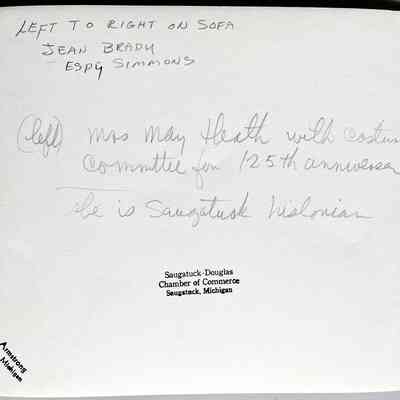 LEFT TO RIGHT ON SOFA
JEAN BRADY
ESPY SIMMONS
(left) Mrs May Heath with costum
Committee for 125th anniver
She is Saugatuck historian
Saugatuck-Douglas
Chamber of Commerce
Saugatuck, Michigan
Armstrong
Michigan